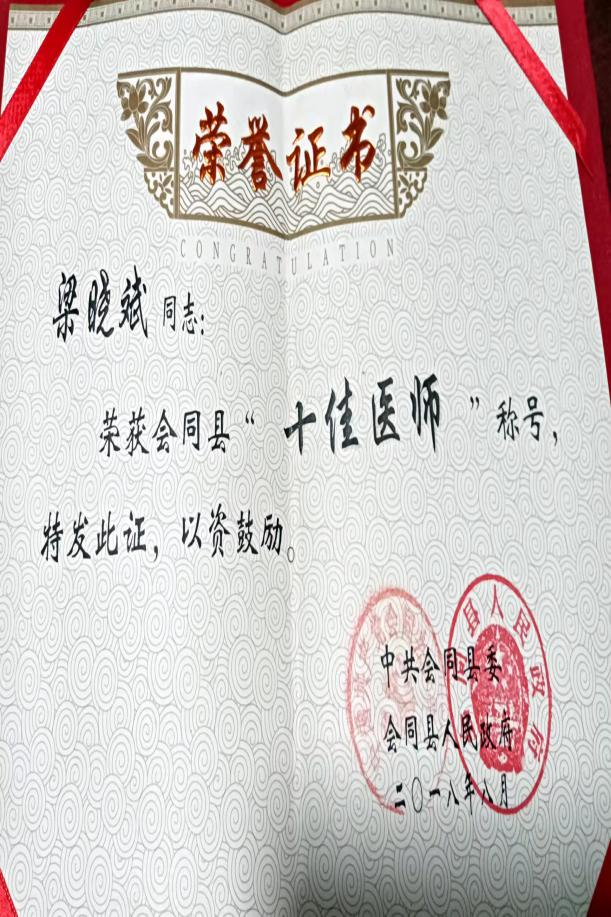 荣誉证书
CONGRATULATION
梁晓斌 同志：
荣获会同县“十佳医师”称号，
特发此证，以资鼓励。
中共会同县委
会同县人民政府
二〇一八年八月
县人民政府